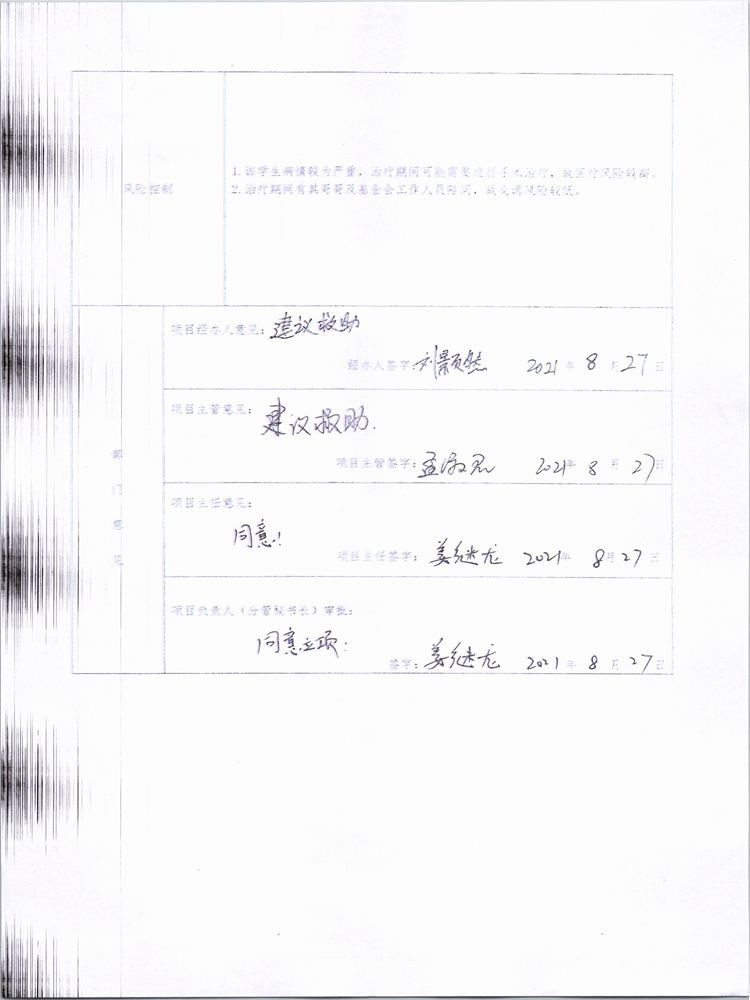 风险控制
1. 该学生病情较为严重，治疗期间可能需要进行手术治疗，故医疗风险较高。
2. 治疗期间有其哥哥及基金会工作人员陪同，故交通风险较低。
部门意见
项目经办人意见：建议救助
经办人签字：刘颢然 2021年8月27日
项目主管意见：
建议救助.
项目主管签字：孟 2021年8月27日
项目主任意见：
同意！
项目主任签字：姜继龙 2021年8月27日
项目负责人（分管秘书长）审批：
同意立项：
签字：姜继龙 2021年8月27日